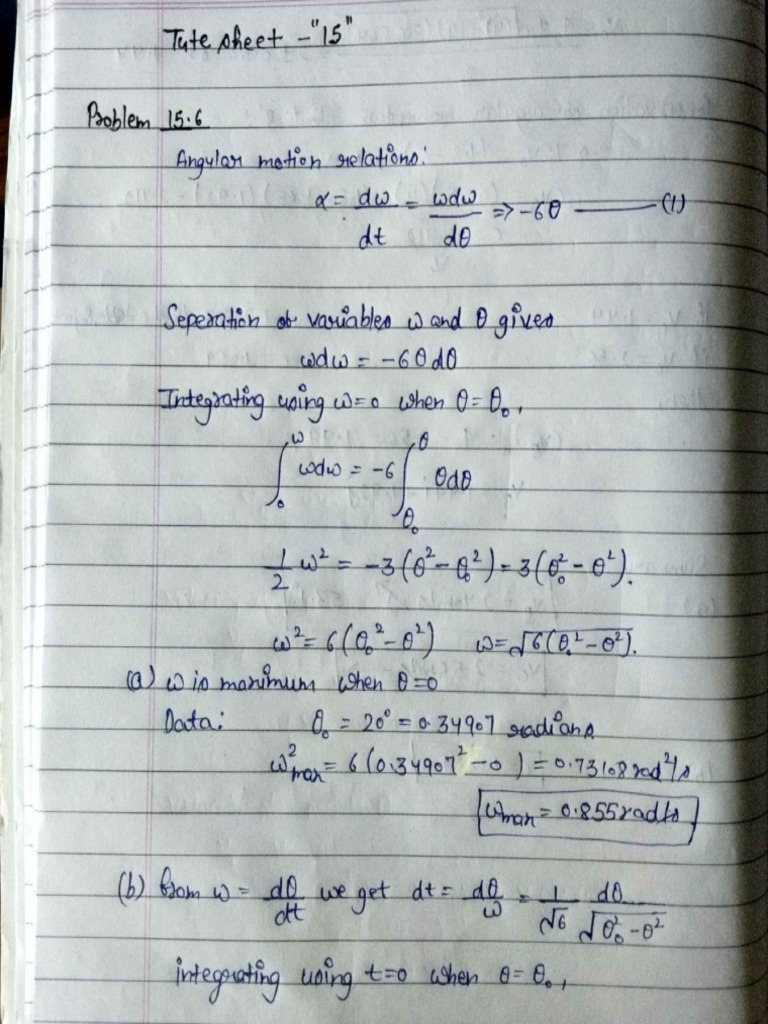 Tute sheet - "15"
Problem 15.6
Angular motion relations:
α = dω/dt = ωdω/dθ => -6θ ——— (1)
Seperation of variables ω and θ gives
ωdω = -6θdθ
Integrating using ω=0 when θ=θ₀,
∫₀^ω ωdω = -6 ∫_θ₀^θ θdθ
1/2 ω² = -3(θ²-θ₀²) = 3(θ₀²-θ²).
ω² = 6(θ₀²-θ²) ω=√6(θ₀²-θ²).
(a) ω is maximum when θ=0
Data: θ₀ = 20° = 0.34907 radians
ω²max = 6(0.34907²-0) = 0.73108 rad²/s
ωmax = 0.855 rad/s
(b) from ω = dθ/dt we get dt = dθ/ω = 1/√6 dθ/√θ₀²-θ²
integrating using t=0 when θ=θ₀,